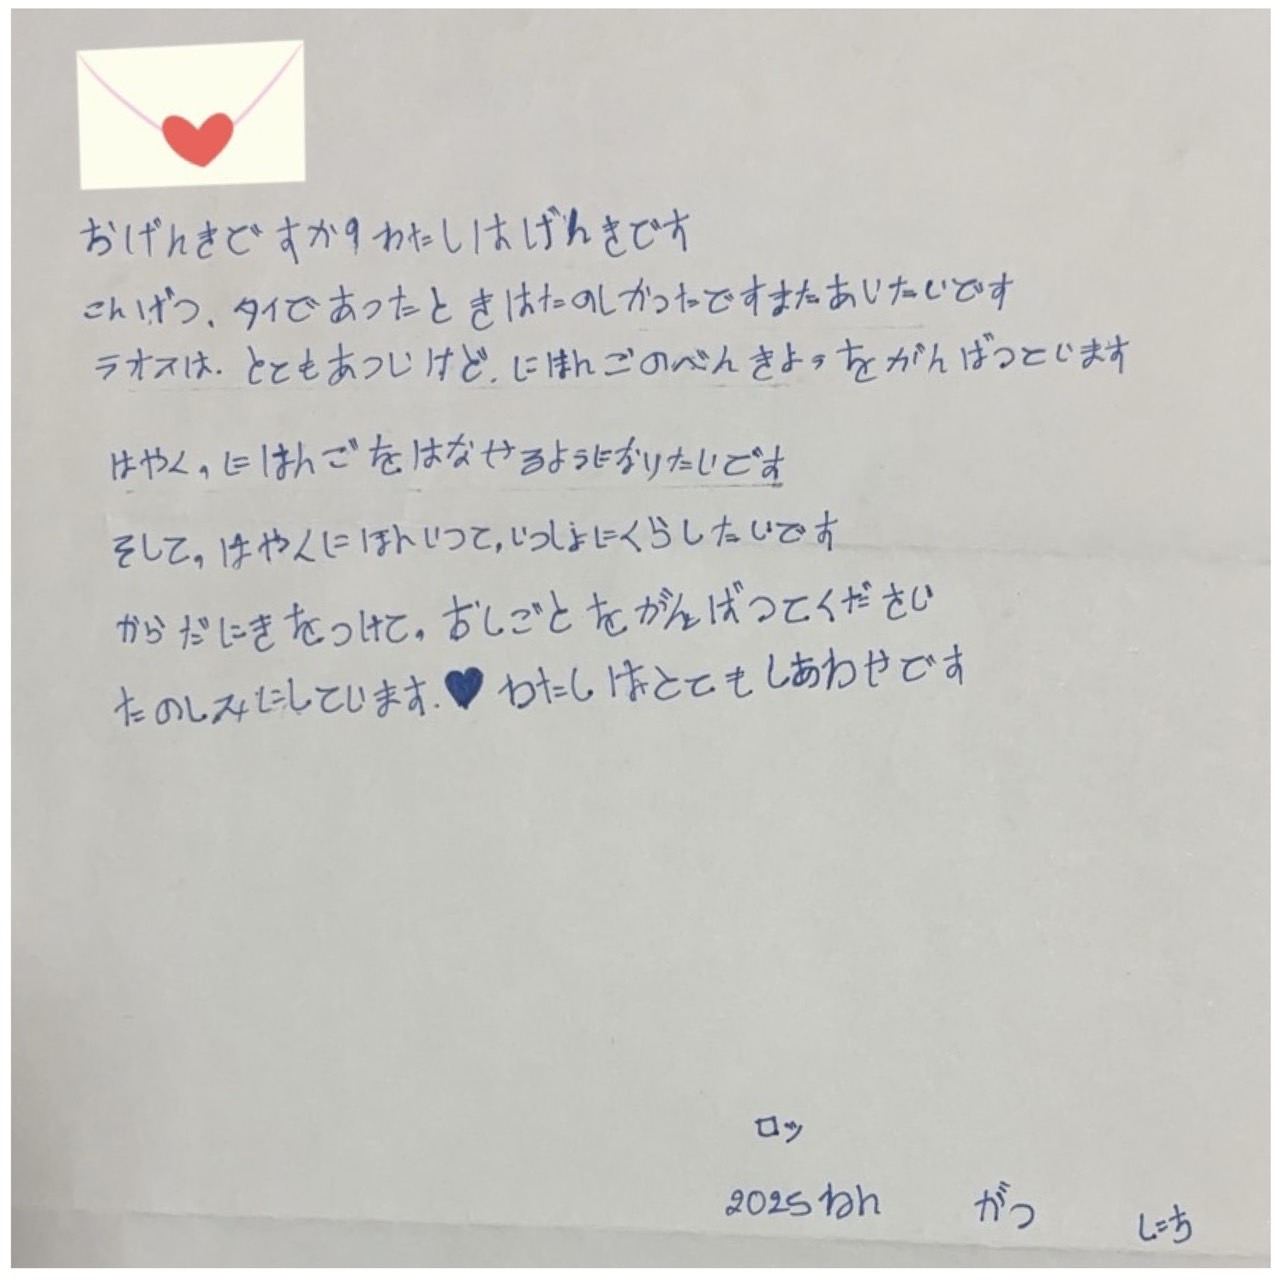 おげんきですか?わたしはげんきです
こんげつ、タイであったときはたのしかったですまたあいたいです
ラオスは、とてもあついけど、にほんごのべんきょうをがんばっています
はやく、にほんごをはなせるようになりたいです
そして、はやくにほんいって、いっしょにくらしたいです
からだにきをつけて、おしごとをがんばってください
たのしみにしています.♥わたしはとてもしあわせです
ロッ
2025ねん がつ にち